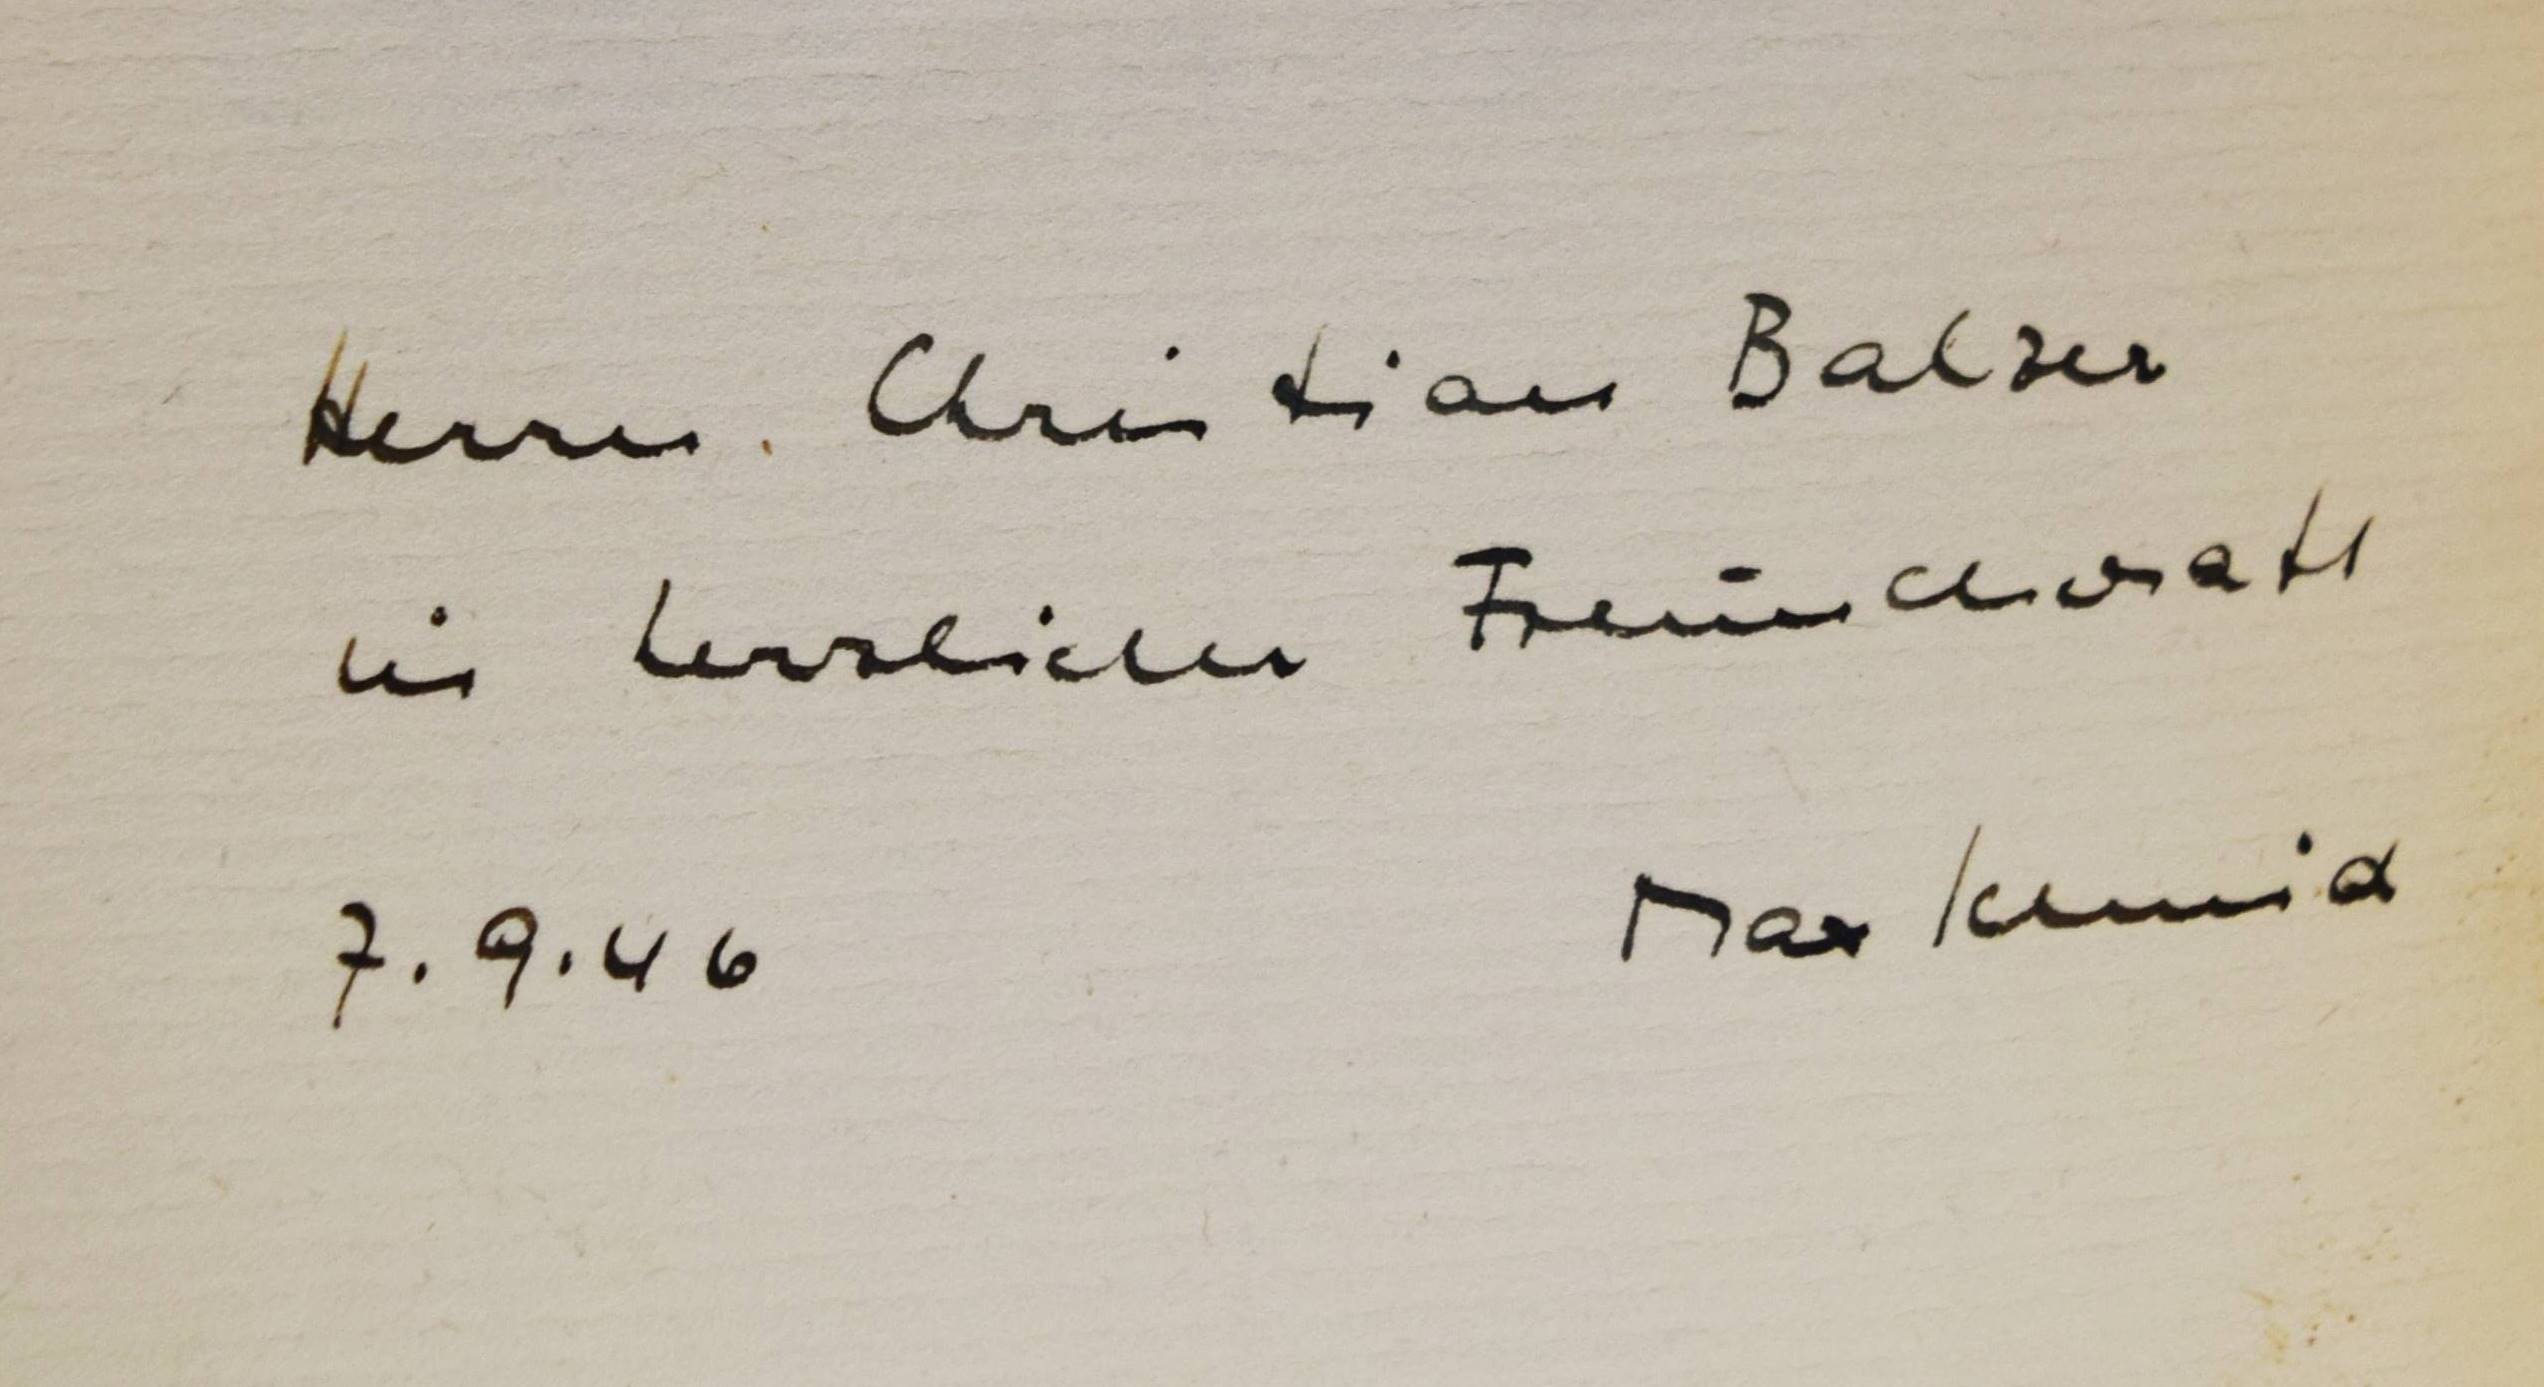 Herrn Christian Balzer
in herzlicher Freundschaft
7.9.46 Max